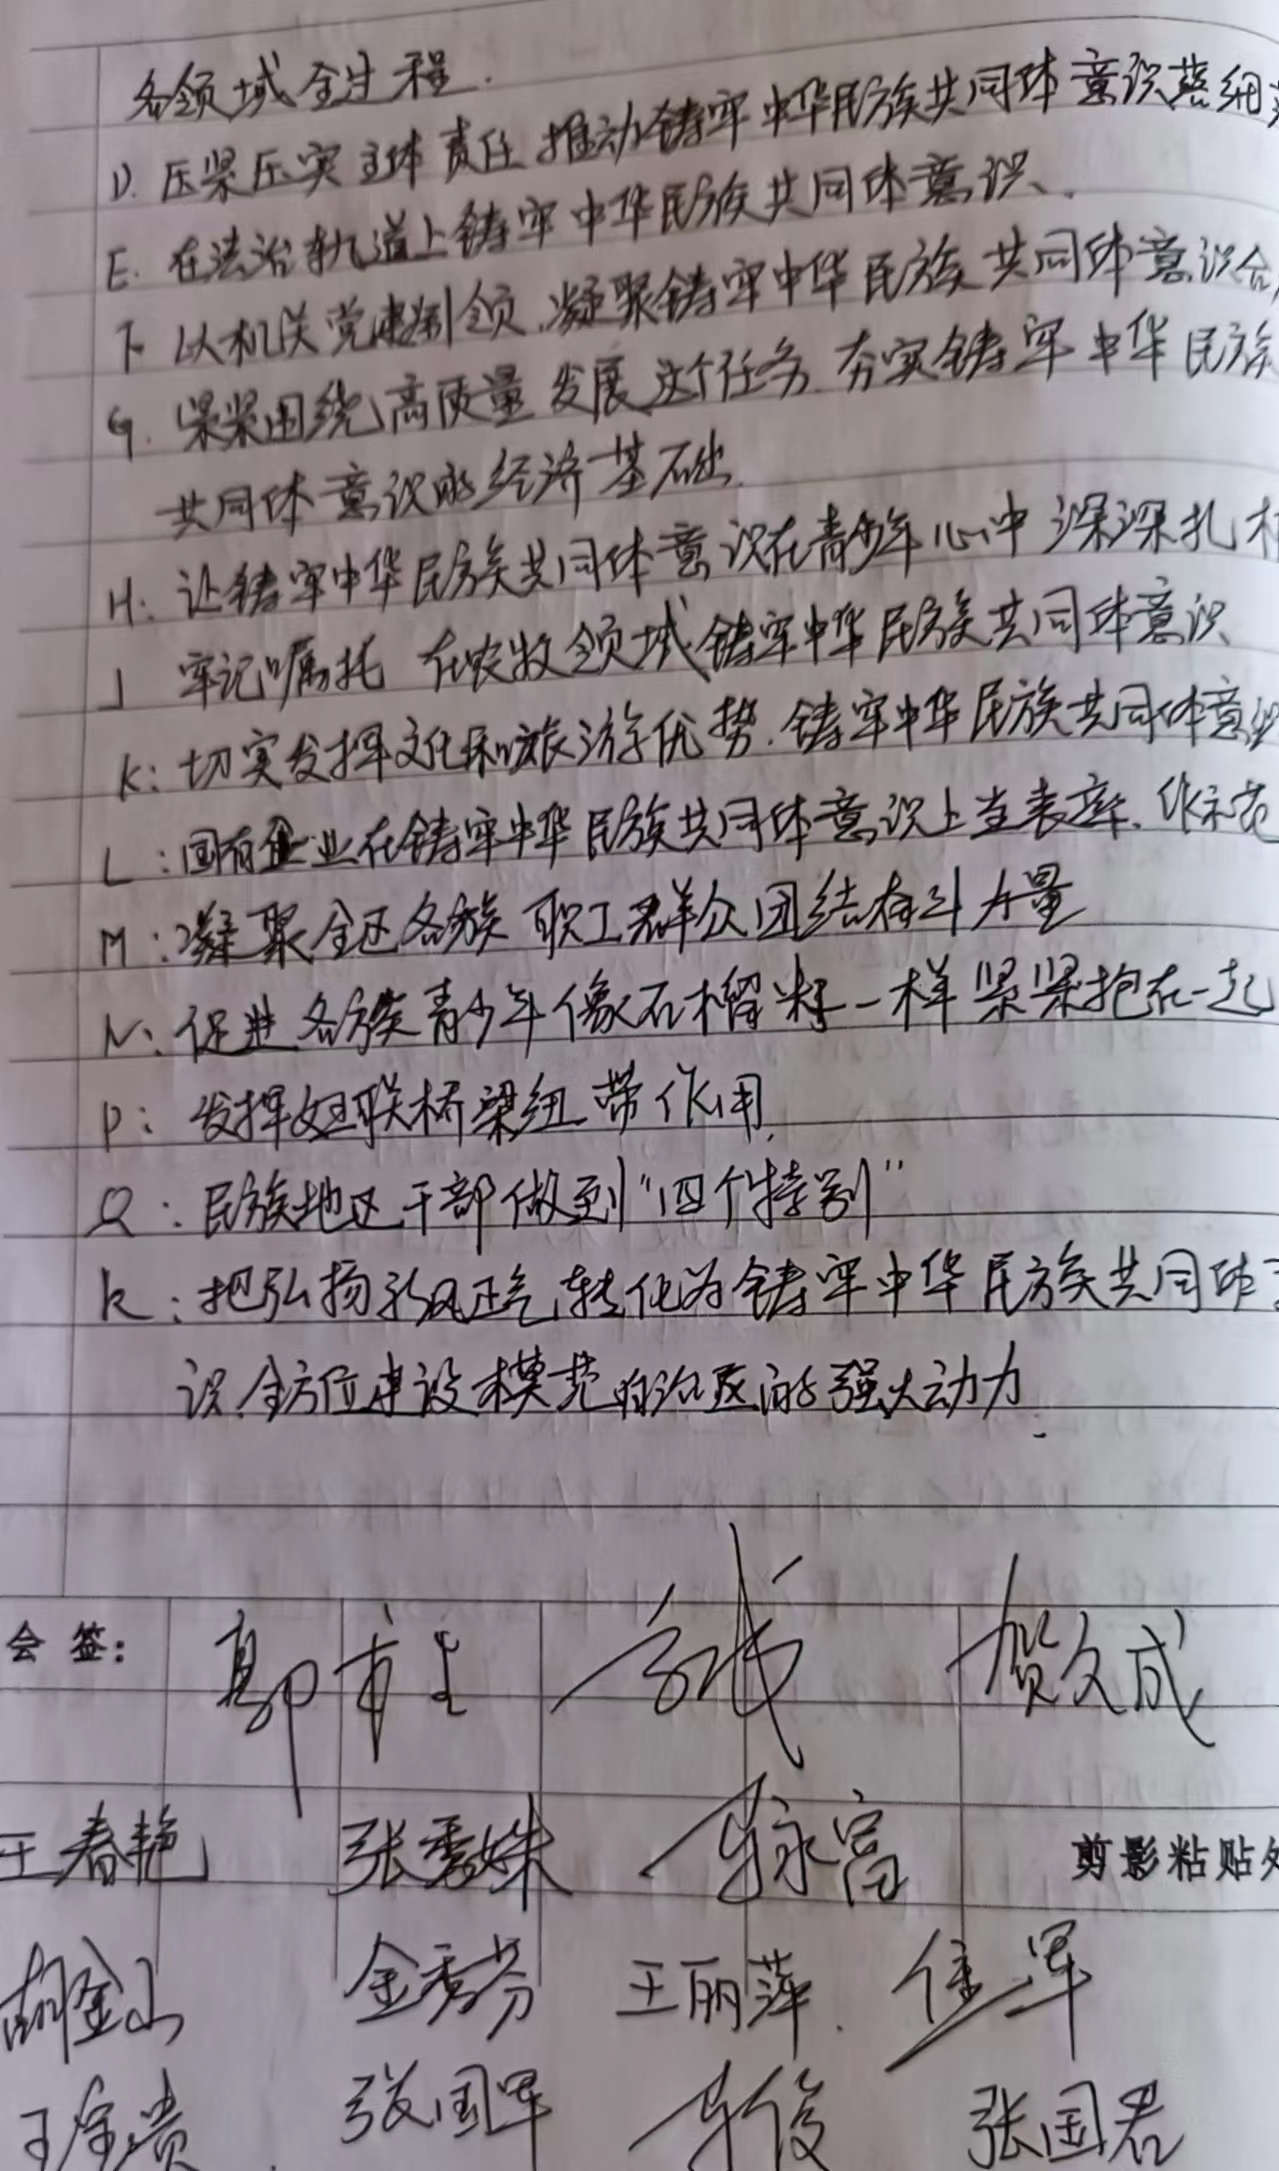 各领域全过程.
D. 压紧压实主体责任 推动铸牢中华民族共同体意识落细
E. 在法治轨道上铸牢中华民族共同体意识、
F 以机关党建引领,凝聚铸牢中华民族共同体意识合
G. 紧紧围绕高质量发展这个任务 夯实铸牢中华民族
共同体意识的经济基础.
H: 让铸牢中华民族共同体意识在青少年心中深深扎
J 牢记嘱托 在农牧领域铸牢中华民族共同体意识
K: 切实发挥文化和旅游优势.铸牢中华民族共同体意
L: 国有企业在铸牢中华民族共同体意识上当表率、作示范
M: 凝聚全区各族职工群众团结奋斗力量
N: 促进各族青少年像石榴籽一样紧紧抱在一起
P: 发挥妇联桥梁纽带作用.
Q: 民族地区干部做到“四个特别”
R: 把弘扬新风正气转化为铸牢中华民族共同体
识、全方位建设模范自治区的强大动力.
会 签:
贺文成
王春艳 张秀姝 永富 剪影粘贴
胡金山 金秀芬 王丽萍.
张国军 俊 张国君